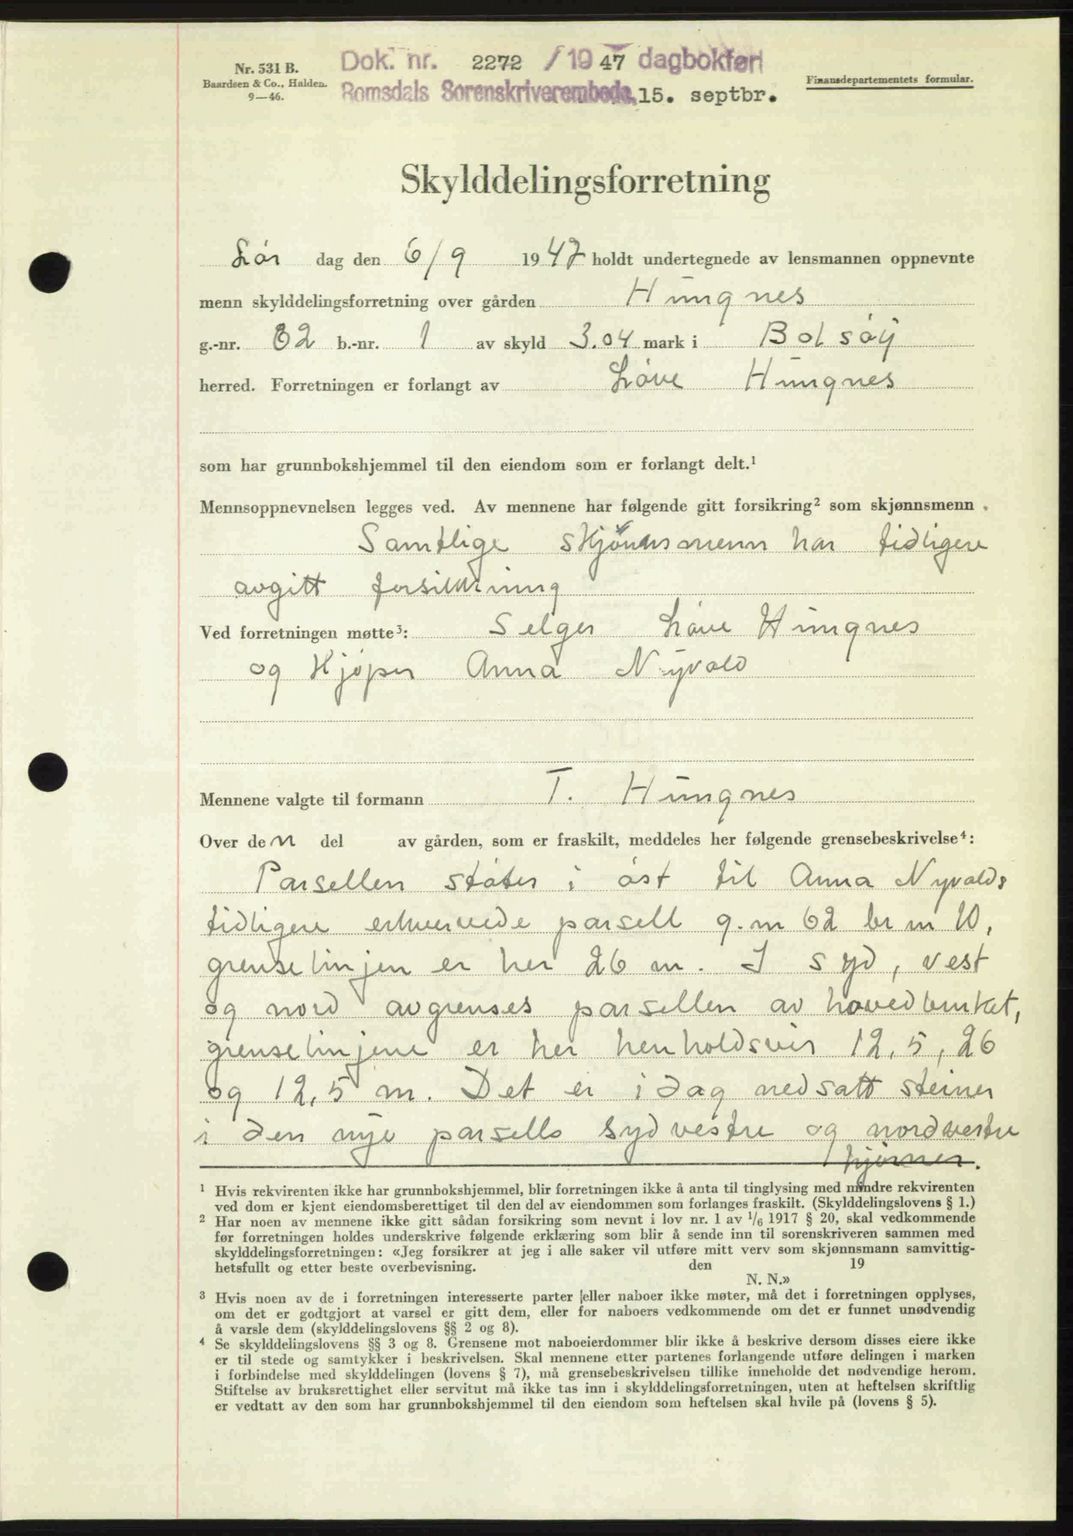 Nr. 531 B.
Baardsen & Co., Halden.
9—46.
Dok. nr. 2272 / 1947 dagbokført
Romsdals Sorenskriverembede, 15. septbr.
Finansdepartementets formular.
Skylddelingsforretning
Lør dag den 6/9 1947 holdt undertegnede av lensmannen oppnevnte
menn skylddelingsforretning over gården Hungnes
g.-nr. 62 b.-nr. 1 av skyld 3.04 mark i Bolsøy
herred. Forretningen er forlangt av Løve Hungnes
som har grunnbokshjemmel til den eiendom som er forlangt delt.¹
Mennsoppnevnelsen legges ved. Av mennene har følgende gitt forsikring² som skjønnsmenn.
Samtlige skjønnsmenn har tidligere
avgitt forsikkring
Ved forretningen møtte³: Selger Løve Hungnes
og kjøper Anna Nyvold
Mennene valgte til formann T. Hungnes
Over den del av gården, som er fraskilt, meddeles her følgende grensebeskrivelse⁴:
Parsellen støter i øst til Anna Nyvolds
tidligere erhvervede parsell g.nr 62 br nr 10,
grenselinjen er her 26 m. I syd, vest
og nord avgrenses parsellen av hovedbruket,
grenselinjene er her henholdsvis 12,5, 26
og 12,5 m. Det er i dag nedsatt steiner
i den nye parsells sydvestre og nordvestre
hjørner.
¹ Hvis rekvirenten ikke har grunnbokshjemmel, blir forretningen ikke å anta til tinglysing med mindre rekvirenten
ved dom er kjent eiendomsberettiget til den del av eiendommen som forlanges fraskilt. (Skylddelingslovens § 1.)
² Har noen av mennene ikke gitt sådan forsikring som nevnt i lov nr. 1 av 1/6 1917 § 20, skal vedkommende
før forretningen holdes underskrive følgende erklæring som blir å sende inn til sorenskriveren sammen med
skylddelingsforretningen: «Jeg forsikrer at jeg i alle saker vil utføre mitt verv som skjønnsmann samvittig-
hetsfullt og etter beste overbevisning. den 19
N. N.»
³ Hvis noen av de i forretningen interesserte parter eller naboer ikke møter, må det i forretningen opplyses,
om det er godtgjort at varsel er gitt dem, eller for naboers vedkommende om det er funnet unødvendig
å varsle dem (skylddelingslovens §§ 2 og 8).
⁴ Se skylddelingslovens §§ 3 og 8. Grensene mot naboeierdommer blir ikke å beskrive dersom disses eiere ikke
er til stede og samtykker i beskrivelsen. Skal mennene etter partenes forlangende utføre delingen i marken
i forbindelse med skylddelingen (lovens § 7), må grensebeskrivelsen tillike inneholde det nødvendige herom.
Stiftelse av bruksrettighet eller servitut må ikke tas inn i skylddelingsforretningen, uten at heftelsen skriftlig
er vedtatt av den som har grunnbokshjemmel til den eiendom som heftelsen skal hvile på (lovens § 5).